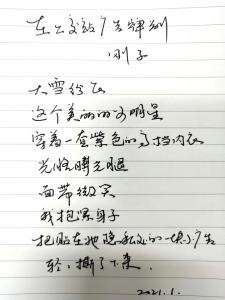 在公交站广告牌别
刚子
大雪纷飞
这个美丽的女明星
穿着一套紫色的高档内衣
光胳膊光腿
面带微笑
我抱紧身子
把贴在她隐私处的一块小广告
轻轻撕了下来
2021.1.